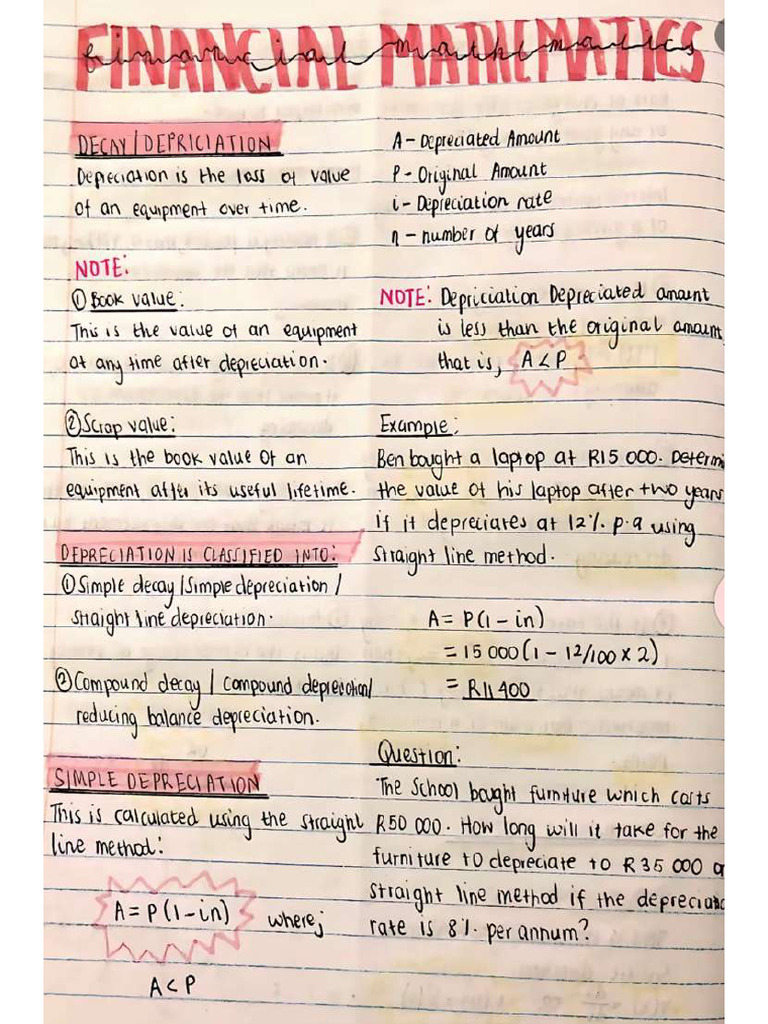 FINANCIAL MATHEMATICS
financial mathematics
DECAY/DEPRICIATION
Depreciation is the loss of value
of an equipment over time.
NOTE:
① Book value:
This is the value of an equipment
at any time after depreciation.
② Scrap value:
This is the book value of an
equipment after its useful lifetime.
DEPRECIATION IS CLASSIFIED INTO:
① Simple decay/Simple depreciation/
Straight line depreciation.
② Compound decay / compound depreciation/
reducing balance depreciation.
SIMPLE DEPRECIATION
This is calculated using the straight
line method:
A=P(1-in) where;
A<P
A - Depreciated Amount
P - Original Amount
i - Depreciation rate
n - number of years
NOTE: Depriciation Depreciated amount
is less than the original amount
that is, A<P
Example:
Ben bought a laptop at R15 000. Determi
the value of his laptop after two years
if it depreciates at 12% p.a using
straight line method.
A= P(1-in)
= 15 000(1 - 12/100 x 2)
= R11 400
Question:
The School bought furniture which costs
R50 000. How long will it take for the
furniture to depreciate to R35 000 o
straight line method if the depreciatio
rate is 8% per annum?